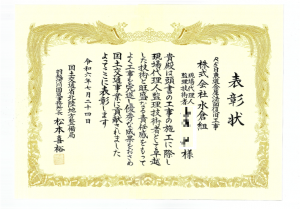 表彰状
R5日東道金屋法面復旧工事
株式会社水倉組
現場代理人
監理技術者
様
貴殿は頭書の工事の施工に際し
現場代理人監理技術者として卓越
した技術と旺盛なる責任感をもって
よく工事を完遂し優秀な成果をおさめ
国土交通事業に貢献されました
ここに表彰します
令和六年七月二十四日
国土交通省北陸地方整備局
羽越河川国道事務所長 松本喜裕